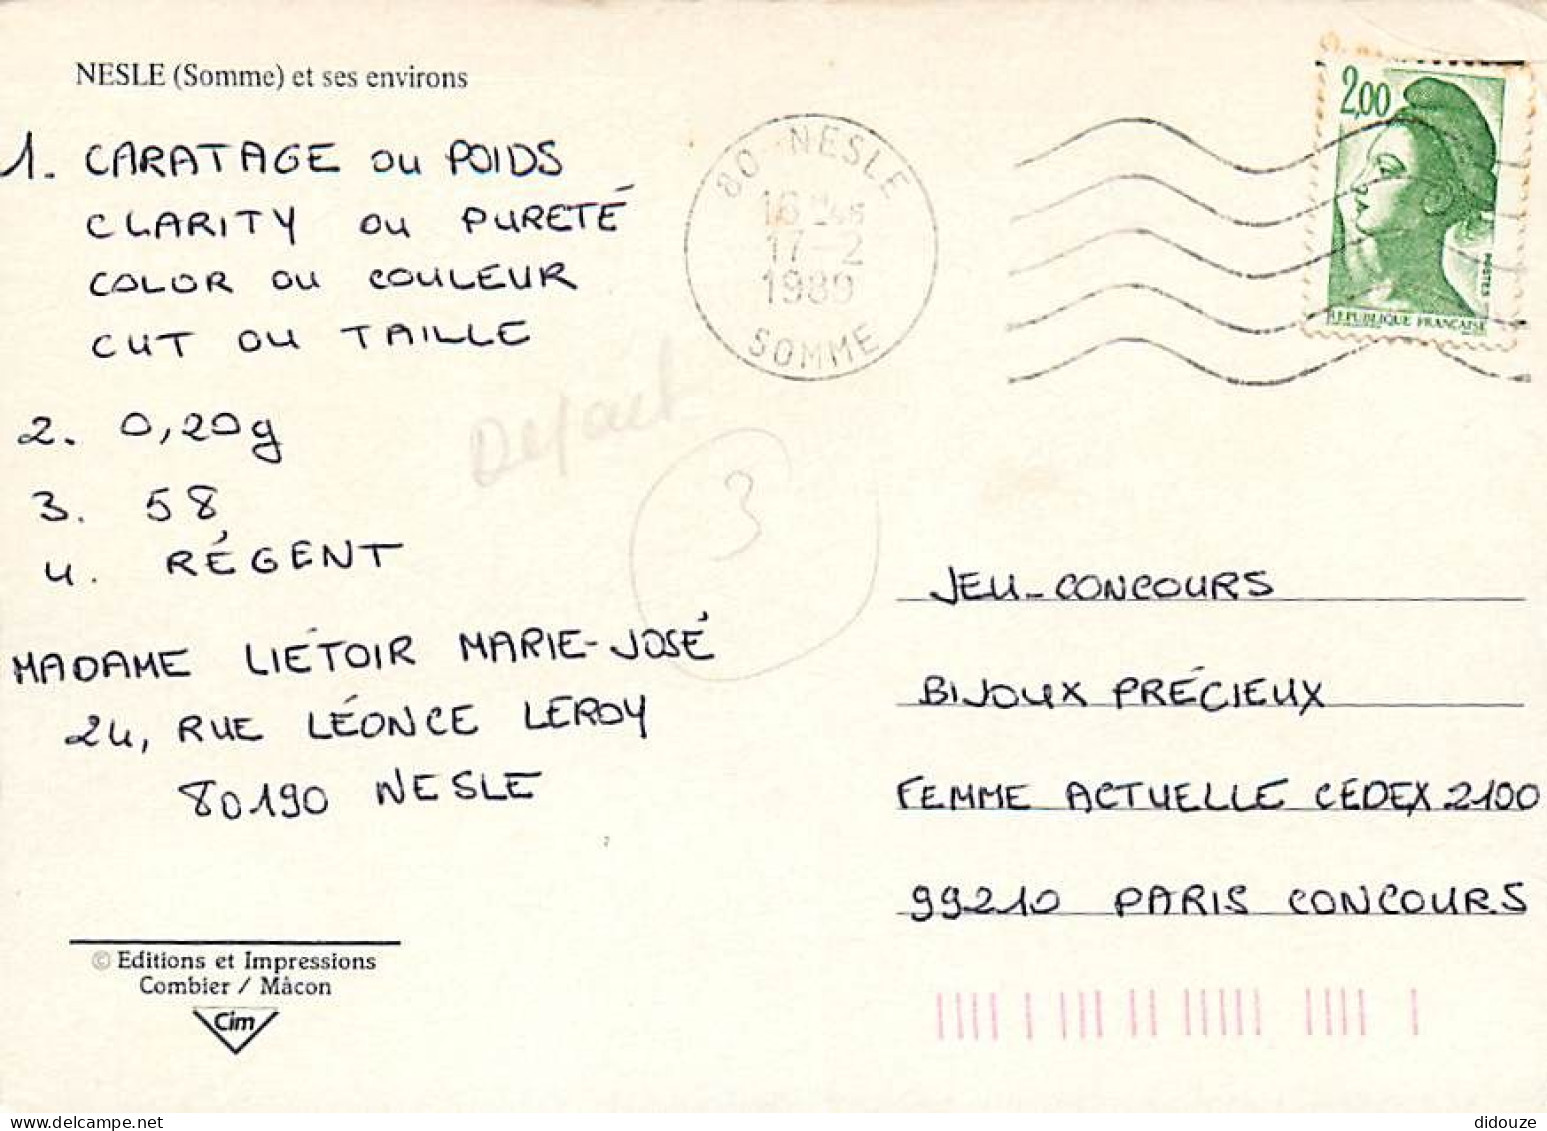 NESLE (Somme) et ses environs
1. CARATAGE OU POIDS
CLARITY OU PURETÉ
COLOR OU COULEUR
CUT OU TAILLE
2. 0,20g
3. 58
4. RÉGENT
MADAME LIÉTOIR MARIE-JOSÉ
24, RUE LÉONCE LEROY
80190 NESLE
© Editions et Impressions
Combier / Mâcon
Cim
Defaut
3
80 NESLE
17-2
1989
SOMME
2,00
POSTES
REPUBLIQUE FRANÇAISE
JEU-CONCOURS
BIJOUX PRÉCIEUX
FEMME ACTUELLE CÉDEX 2100
99210 PARIS CONCOURS
didouze